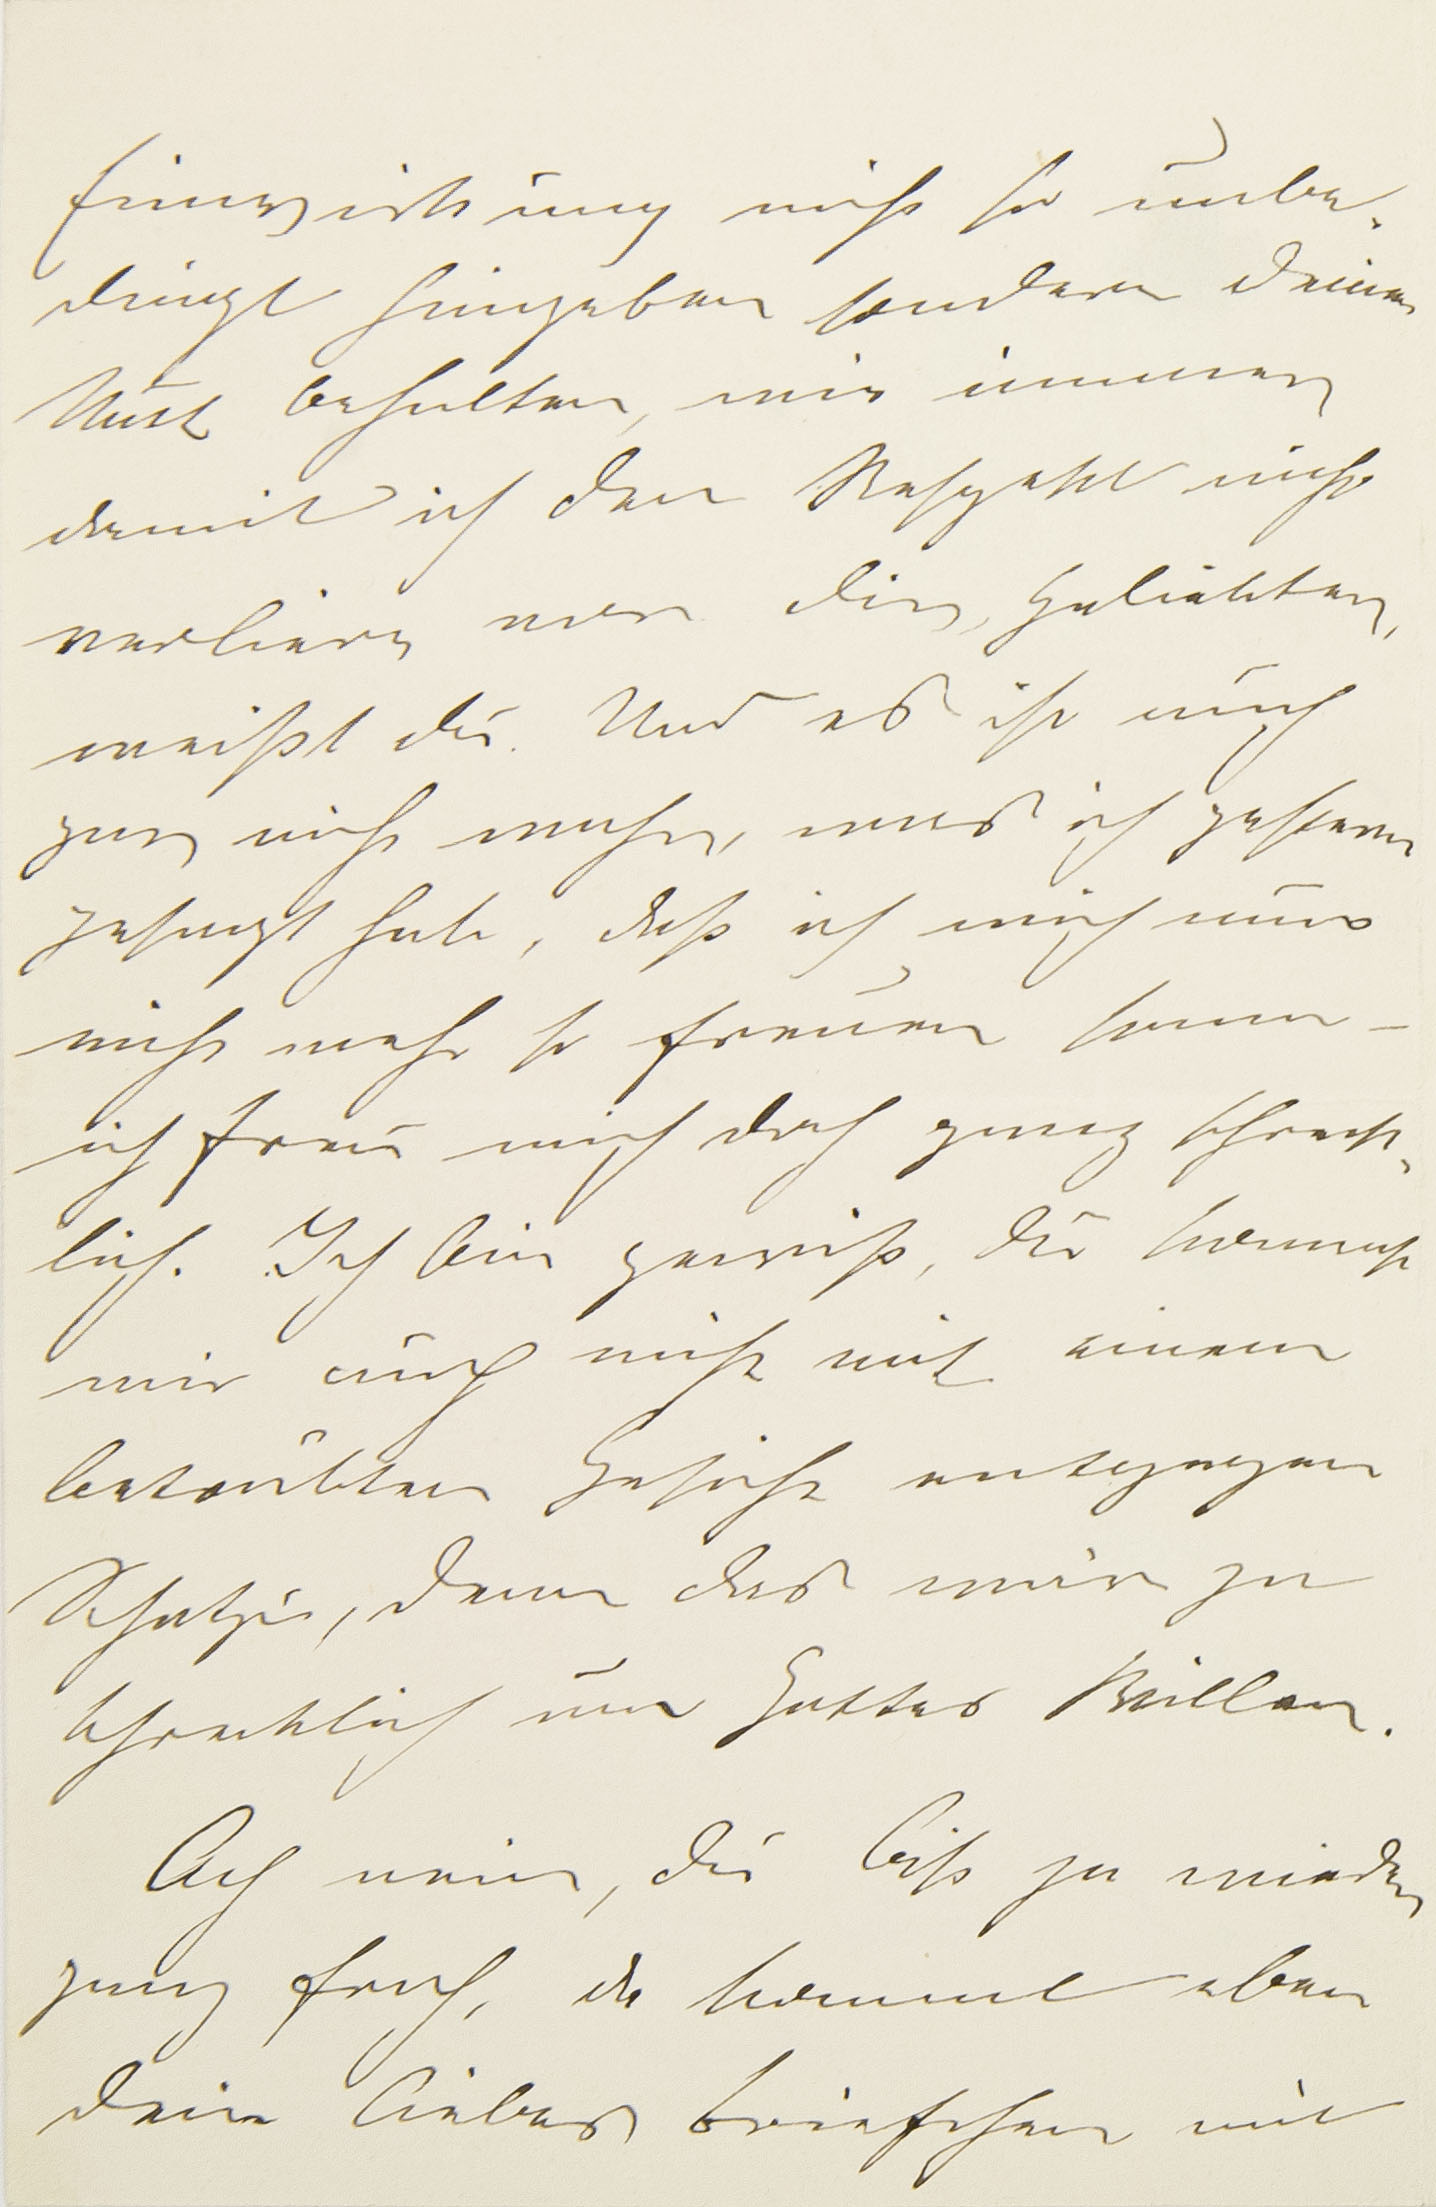 Einwirkung nicht so unbe-
dingt hingeben sondern deinen
Mut behalten, wie immer
damit ich den Respekt nicht
verliere vor dir, Geliebter,
weißt du. Und es ist auch
gar nicht wahr, was ich gestern
gesagt habe, daß ich mich nun
nicht mehr so freuen kann –
ich freu mich doch ganz schreck-
lich. Ich bin gewiß, du kommst
mir auch nicht mit einem
betrübten Gesicht entgegen
Schatzi, denn das wär ja
schrecklich um Gottes Willen.
Ach nein, du bist ja wieder
ganz froh, da kommt eben
dein liebes Briefchen mit